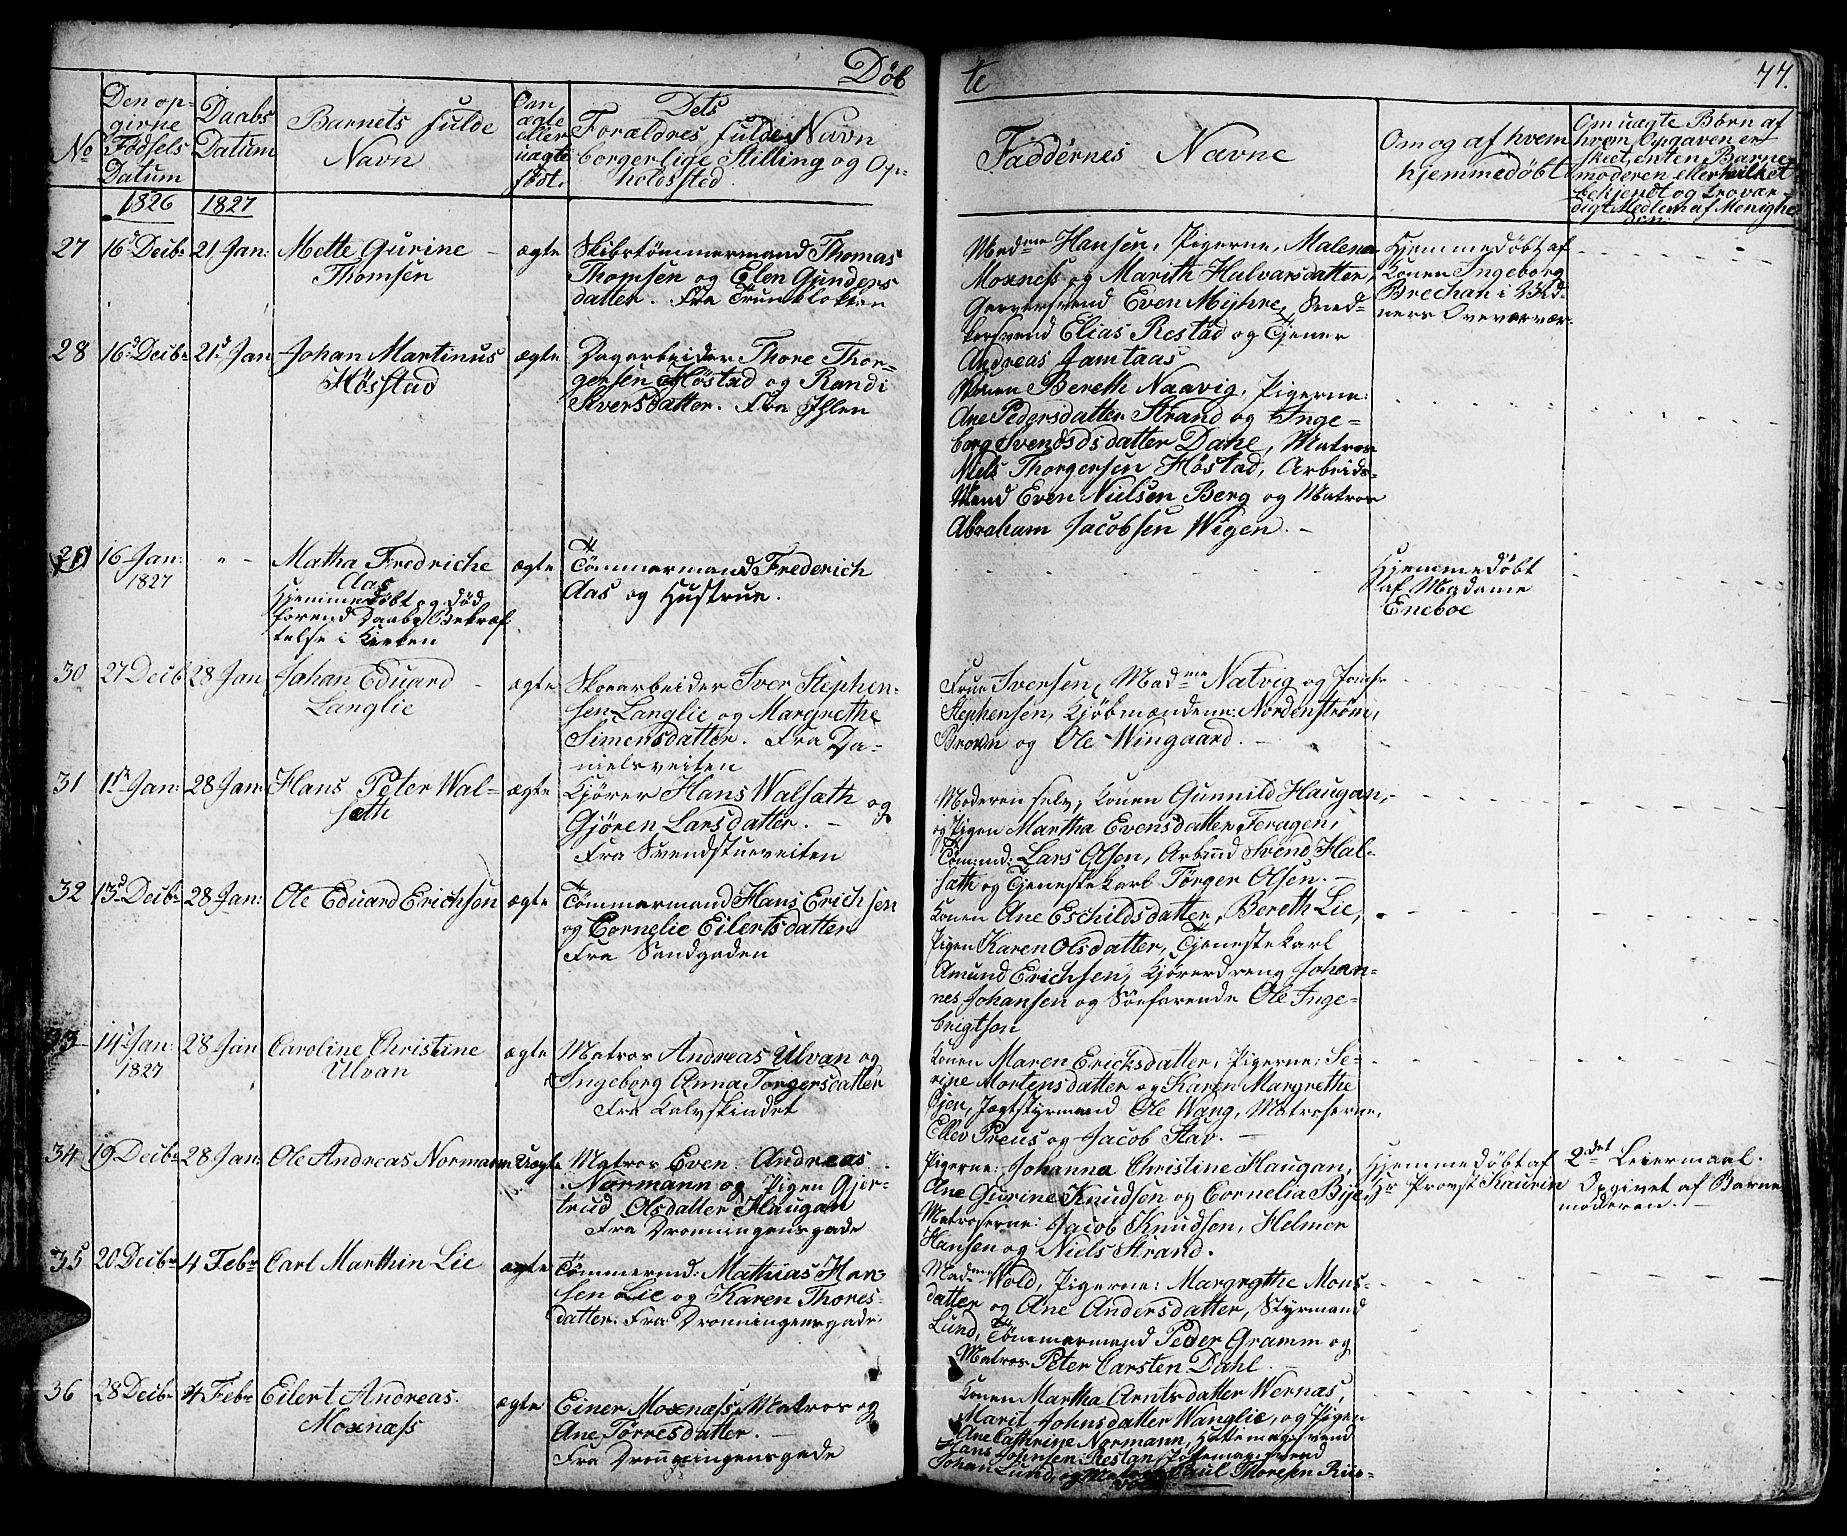 Døb
te
77.
No
Den op-
girne
Fødsels
Datum
Daabs
Datum
Barnets fulde
Navn
Om
ægte
eller
uægte
født.
Dets
Forældres fulde Navn
borgerlige Stilling og Op-
holdssted.
Faddernes Navne
Om og af hvem
hjemmedøbt
Om uægte Børn af
hvem Opgaven er
skeet, enten Barne-
moderen eller hvilket
bekjendt og trovær-
digt Medlem af Menighe-
den.
1826
1827
27
16d Decbr
21 Jan:
Mette Gurine
Thomsen
ægte
Skibstømmermand Thomas
Thomsen og Elen Gunders
datter. Fra
Madme Hansen, Pigerne, Malena
Moxness og Marith Halvarsdatter,
Garversvend Even Myhre, Sned-
kersvend Elias Restad og Tjener
Andreas Jamtaas
Hjemmedøbt af
Konen Ingeborg
Brechan i Vid-
ners Overvær.
28
16d Decbr
21d Jan
Johan Martinus
Høsstad
ægte
Dagarbeider Thore Thor-
gersen Høstad og Randi
Siversdatter. Fra Ihlen
Konen Bereth Naavig, Pigerne:
Ane Pedersdatter Strand og Inge-
borg Svendsdsdatter Dahl, Matros
Niels Thorgersen Høstad, Arbeids-
Mand Even Nielsen Berg og Matros
Abraham Jacobsen Wigen. -
29
16 Jan:
1827
" -
Matha Fredriche
Aas
Hjemmedøbt og død
forend Daabs Bekræf-
telse i Kirken
ægte
Tømmermand Frederich
Aas og Hustrue.
Hjemmedøbt
af Madame
Eneboe
30
27 Decb
28 Jan
Johan Eduard
Langlie
ægte
Skoearbeider Iver Stephen-
sen Langlie og Margrethe
Simensdatter. Fra Da-
nielsveiten
Frue Iversen, Madme Natvig og Jomfr
Stephensen, Kjøbmændene: Nordenstrøm,
Brown og Ole Wingaard. -
31
1ste Jan:
28 Jan:
Hans Peter Wal-
seth
ægte
Kjører Hans Walsath og
Gjøren Larsdatter. -
Fra Svendstueveiten
Moderen selv, Konen Gunnild Haugan,
og Pigen Martha Evensdatter Feragen,
Tømmd: Lars Olsen, Arbmd Svend Hal-
sath og Tjenestekarl Törger Olsen. -
32
13d Decbr
28 Jan:
Ole Eduard Erichsen
ægte
Tømmermand Hans Erichsen
og Cornelie Eilertsdatter
Fra Sandgaden
Konen Ane Eschildsdatter, Bereth Lie,
Pigen Karen Olsdatter, Tjenestekarl
Amund Erichsen, Kjørerdreng Johan-
nes Johansen og Søefarende Ole Inge-
brigtson
33
14d Jan:
1827
28 Jan
Caroline Christine
Ulvan
ægte
Matros Andreas Ulvan og
Ingeborg Anna Torgersdatter
Fra Kalvskindet
Konen Maren Ericksdatter, Pigerne: Se-
rine Mortensdatter og Karen Margrethe
Øjen, Jagtstyrmand Ole Wang, Matroserne,
Ellev Preus og Jacob Stav. -
34
19 Decbr
28 Jan:
Ole Andreas Normann
Uægte
Matros Even Andreas
Normann og Pigen Gjer-
trud Olsdatter Haugan
Fra Dronningensgade
Pigerne: Johanna Christine Haugan,
Ane Gurine Knudsen og Cornelia Bye,
Matroserne: Jacob Knudsen, Helmer
Hansen og Niels Strand.
Hjemmedøbt af
Hr Provst Kaurin
2det Leiermaal.
Opgivet af Barne
moderen. -
35
20 Decbr
4 Febr
Carl Marthin Lie
ægte
Tømmermd: Mathias Han-
sen Lie og Karen Thores-
datter. Fra Dronningensgade
Madme Vold, Pigerne: Margrethe Mons-
datter og Ane Andersdatter, Styrmand
Lund, Tømmermand Peder Gramm og
Matros Peter Carsten Dahl. -
36
28 Decbr
4 Febr
Eilert Andreas
Moxnæss
ægte
Einer Moxnæss Matros og
Ane Tørresdatter. -
Fra Dronningensgade
Konen Martha Arntsdatter Wernæs,
Marit Johnsdatter Wanglie, og Pigen
Ane Cathrine Normann, Hattemagersvend
Hans Johnsen Restan,
Johan Lund, og Matros Paul Thoresen Riis-